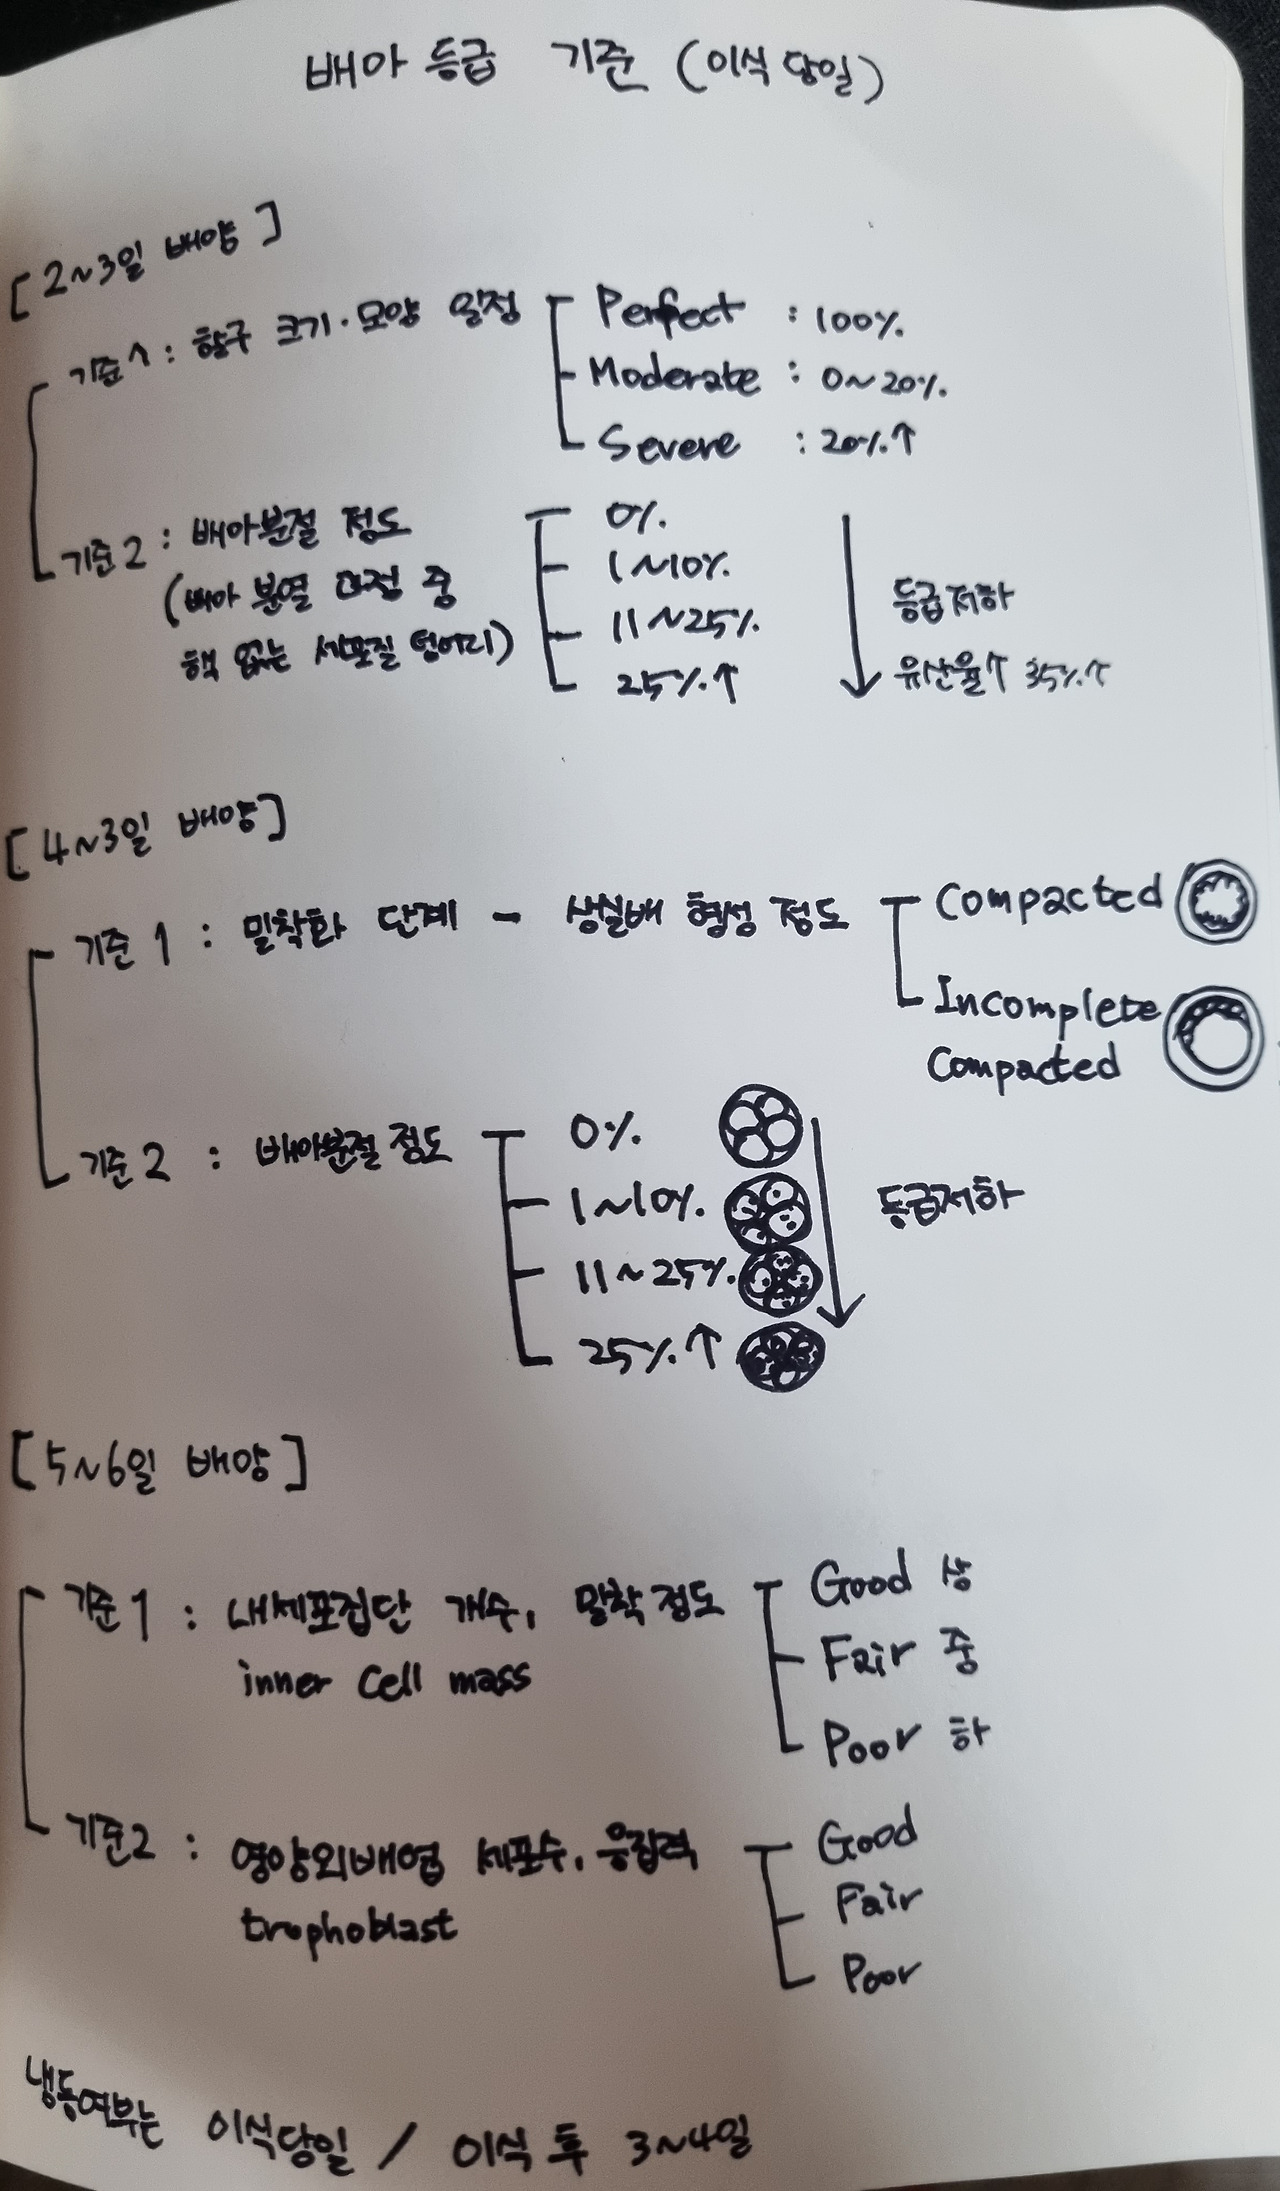 배아 등급 기준 (이식 당일)
[2~3일 배양]
기준1 : 할구 크기·모양 일정
Perfect : 100%
Moderate : 0~20%
Severe : 20%↑
기준2 : 배아분절 정도
(배아 분열 과정 중
핵 없는 세포질 덩어리)
0%
1~10%
11~25%
25%↑
등급저하
유산율↑ 35%↑
[4~3일 배양]
기준 1 : 밀착화 단계 - 상실배 형성 정도
Compacted
Incomplete
Compacted
기준2 : 배아분절 정도
0%
1~10%
11~25%
25%↑
등급저하
[5~6일 배양]
기준1 : 내세포집단 개수, 밀착 정도
inner cell mass
Good 상
Fair 중
Poor 하
기준2 : 영양외배엽 세포수, 응집력
trophoblast
Good
Fair
Poor
냉동여부는 이식당일 / 이식 후 3~4일